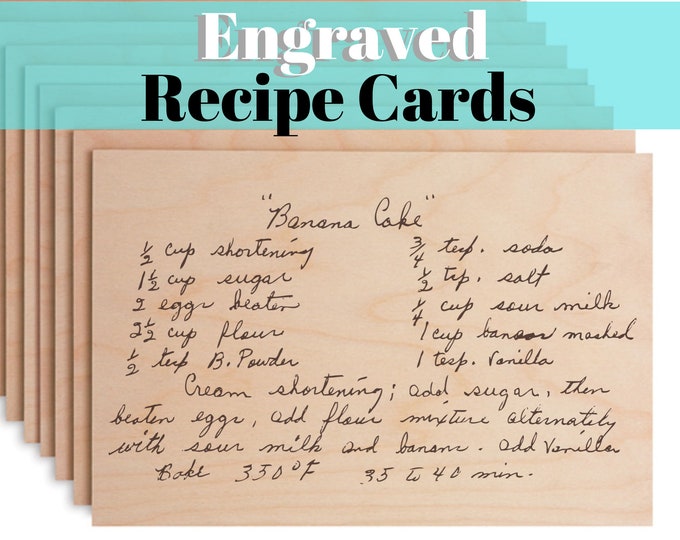 Engraved
Recipe Cards
"Banana Cake"
1/2 cup shortening
1 1/2 cup sugar
2 eggs beaten
2 1/2 cup flour
1/2 tesp B. Powder
3/4 tesp. soda
1/2 tsp. salt
1/4 cup sour milk
1 cup banana mashed
1 tesp. Vanilla
Cream shortening; add sugar, then
beaten eggs, add flour mixture alternately
with sour milk and banana. add Vanilla
Bake 350°F 35 to 40 min.